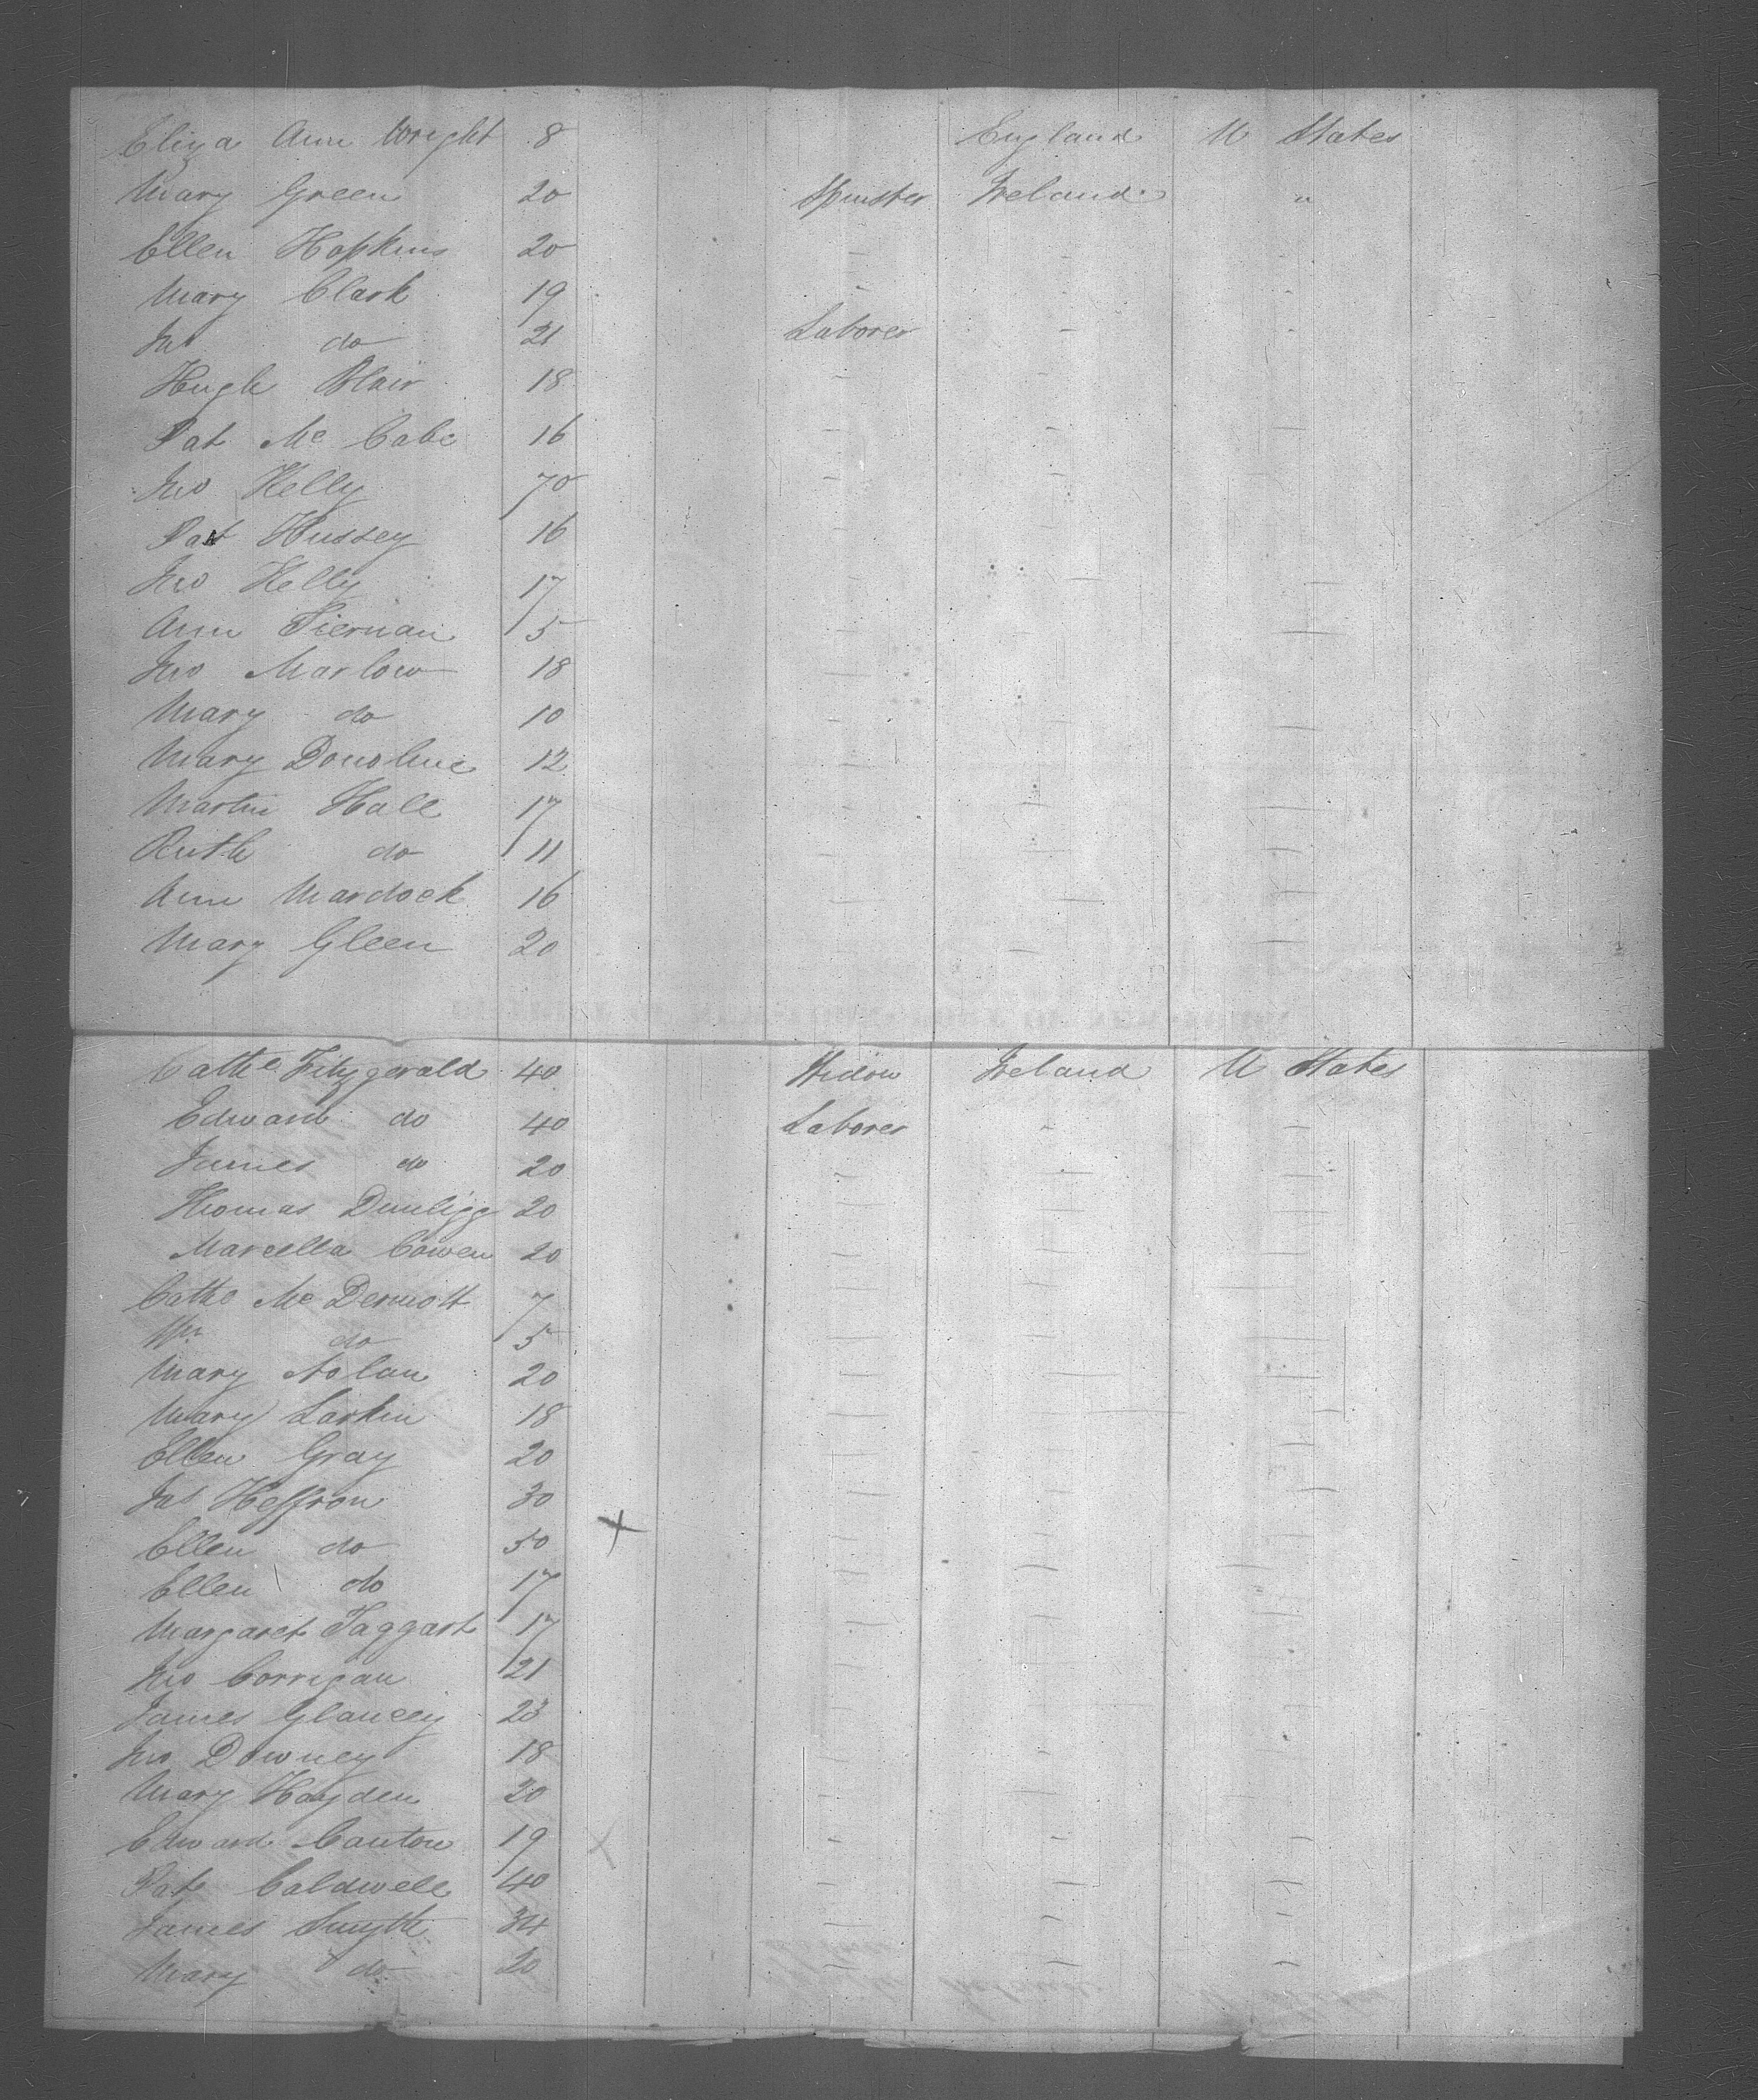 Eliza Ann Wright 8 England U States
Mary Green 20 Spinster Ireland "
Ellen Hopkins 20 - - -
Mary Clark 19 - - -
Jas do 21 Laborer - -
Hugh Blair 18 - -
Pat Mc Cabe 16 - - -
Jno Kelly 70 - -
Pat Hussey 16 - -
Jno Kelly 17 - - -
Ann Tiernan 5 - - -
Jno Marlow 18 - - -
Mary do 10 - - -
Mary Donohue 12 - - -
Martin Hall 17 - - -
Ruth do 11 - - -
Ann Mardock 16 - - -
Mary Gleen 20 - - -
Cathe Fitzgerald 40 Widow Ireland U States
Edward do 40 Laborer - -
James do 20 - - -
Thomas Dunligg 20 - - -
Marcella Cowen 20 - - -
Cathe Mc Dermott 7 - - -
Wm do 5 - - -
Mary Nolan 20 - - -
Mary Larkin 18 - - -
Ellen Gray 20 - - -
Jas Heffron 30 - - -
Ellen do 50 X - - -
Ellen do 17 - - -
Margaret Taggart 17 - - -
Jno Corrigan 21 - - -
James Glancey 23 - - -
Jno Downey 18 - - -
Mary Hayden 20 - - -
Edward Canton 19 X - - -
Pat Caldwell 40 - - -
James Smyth 34 - - -
Mary do 20 - - -